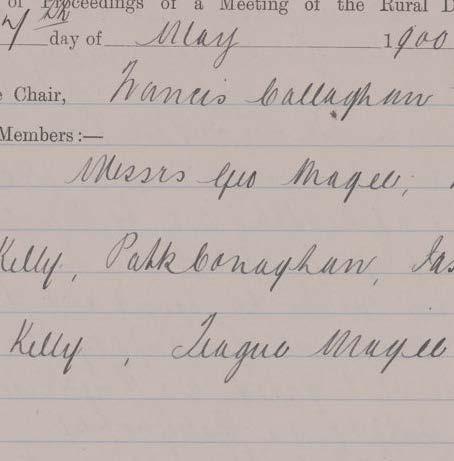 of Proceedings of a Meeting of the Rural D
7th day of May 1900
e Chair, Francis Callaghan
Members :—
Messrs Geo Magee,
Kelly, Patk Conaghan, Jas
Kelly, Teague Magee